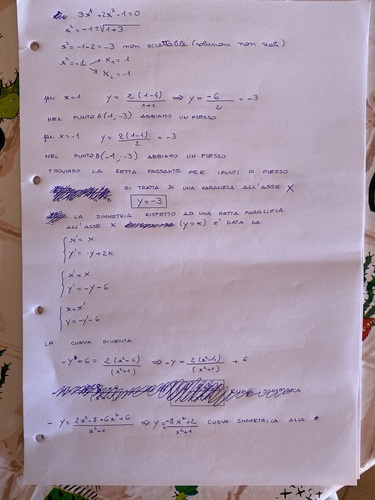 3x⁴+2x²-1=0
x²=-1±√1+3
x²=-1-2=-3 non accettabile (soluzioni non reali)
x²=-1 x₁=1
x₂=-1
per x=1 y=2(1-4)/1+1 ⇒ y=-6/2=-3
NEL PUNTO A(1,-3) ABBIAMO UN FLESSO
per x=-1 y=2(1-4)/2=-3
NEL PUNTO B(-1,-3) ABBIAMO UN FLESSO
TROVIAMO LA RETTA PASSANTE PER I PUNTI DI FLESSO
SI TRATTA DI UNA PARALLELA ALL'ASSE X
y=-3
LA SIMMETRIA RISPETTO AD UNA RETTA PARALLELA
ALL'ASSE X (y=k) E' DATA DA
x'=x
y'=-y+2k
x'=x
y'=-y-6
x=x'
y=-y'-6
LA CURVA DIVENTA
-y-6=2(x²-4)/(x²+1) ⇒ -y=2(x²-4)/(x²+1)+6
-y=2x²-8+6x²+6/x²+1 ⇒ y=-8x²+2/x²+1 CURVA SIMMETRICA ALLA *